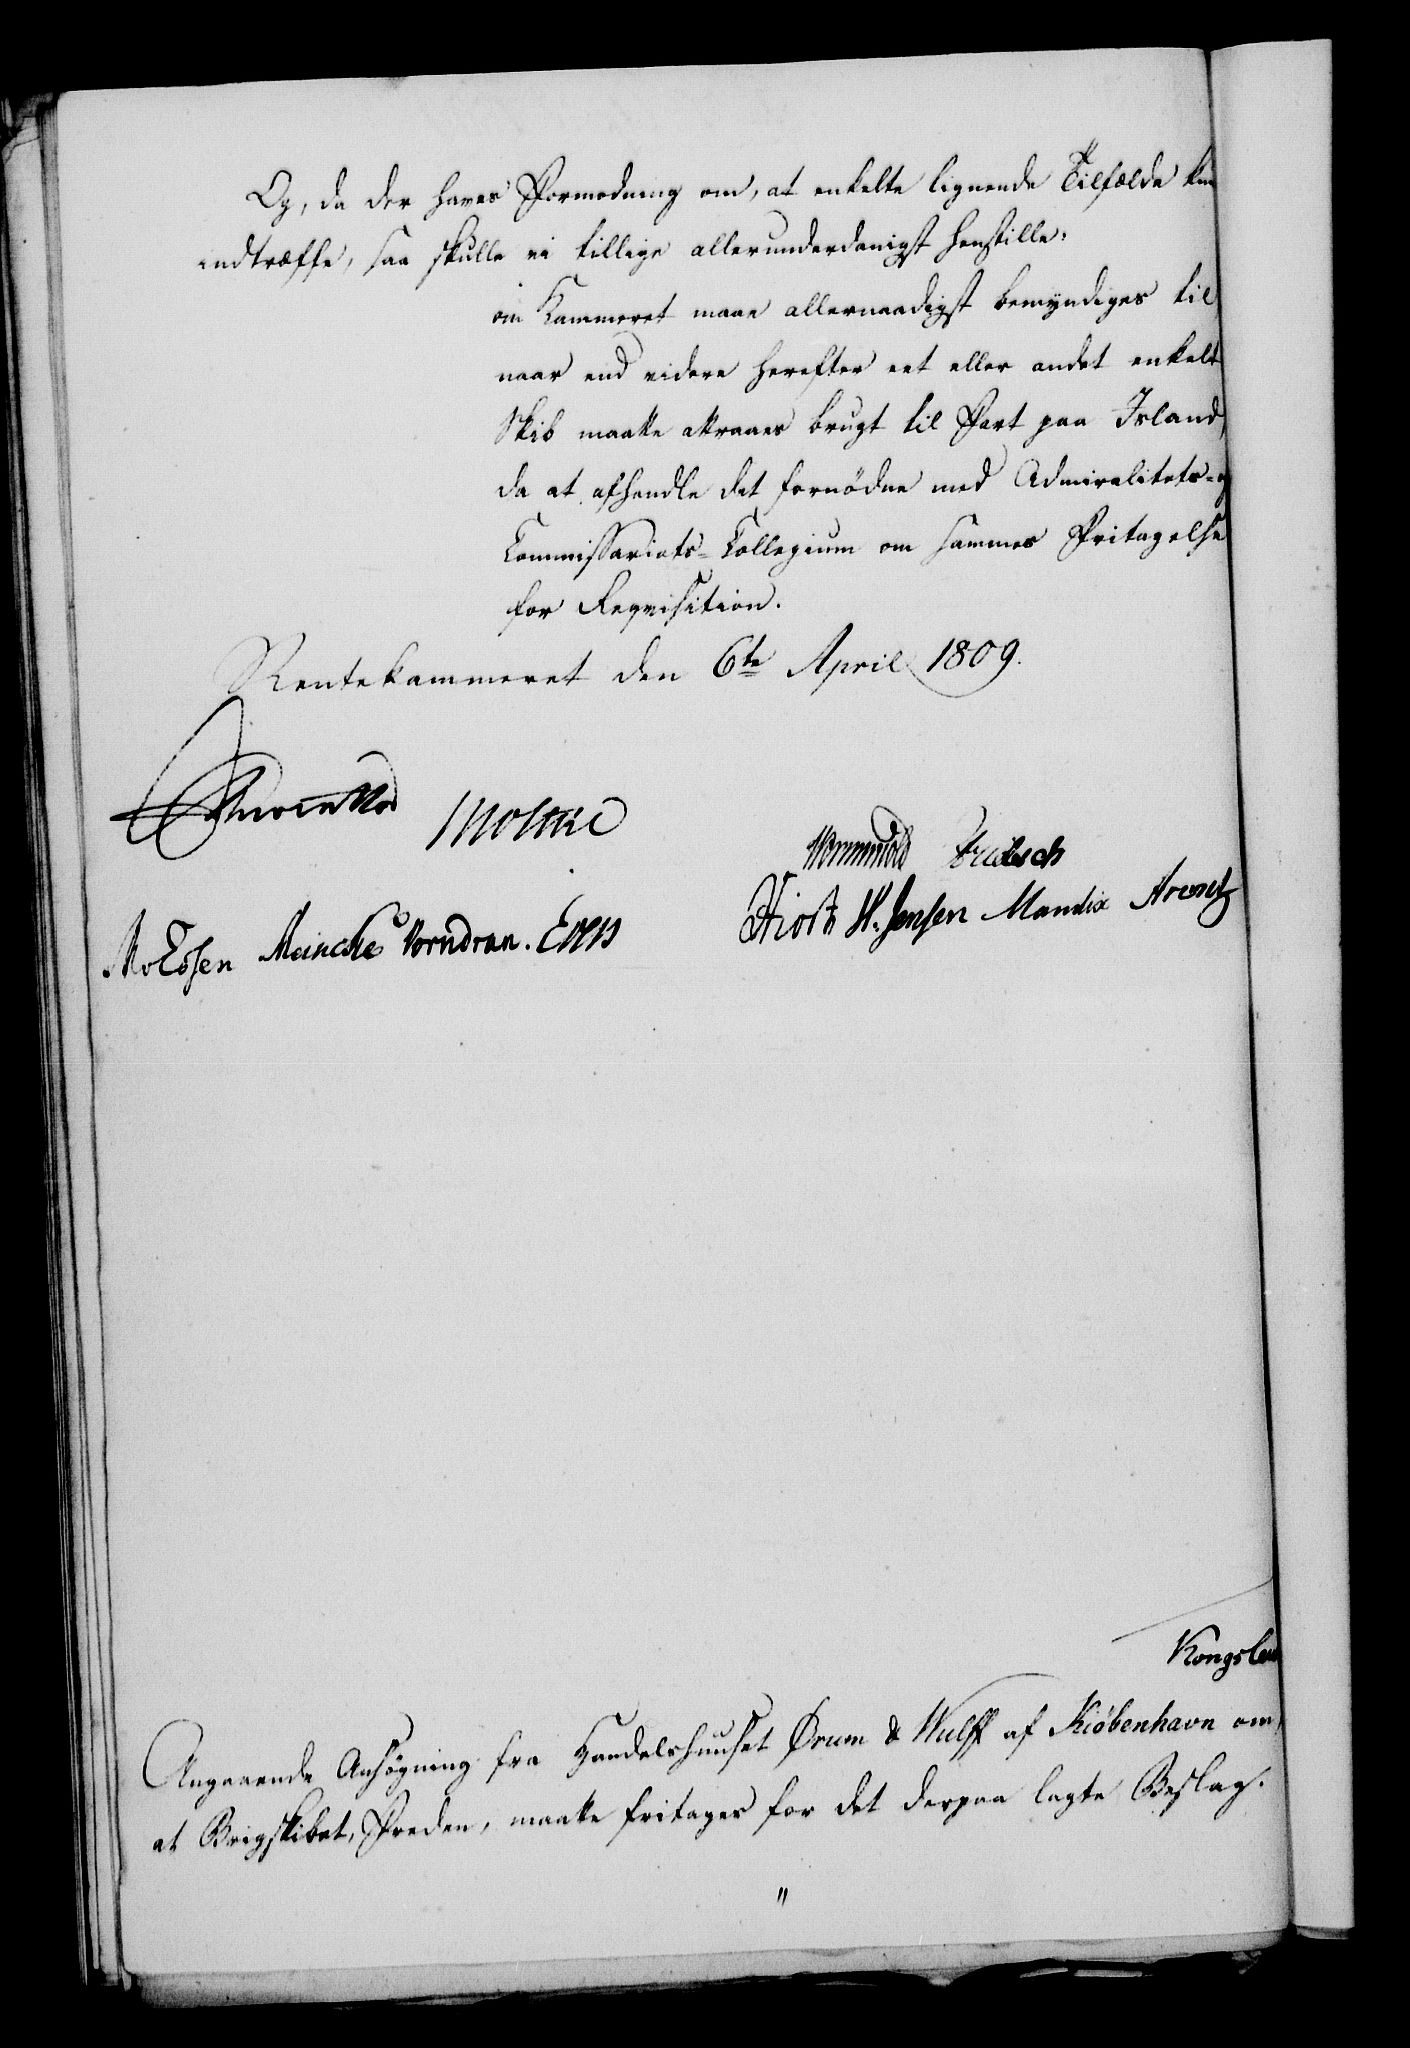 Og, da der haves Formodning om, at enkelte lignende Tilfælde kan
indtræffe, saa skulle vi tillige allerunderdanigst henstille:
om Kammeret maae allernaadigst bemyndiges til
naar end videre herefter eet eller andet enkelt
Skib maatte attraaes brugt til Fart paa Island,
da at afhandle det fornødne med Admiralitets- og
Commissariats-Collegium om sammes Fritagelse
for Requisition.
Rentekammeret den 6te April 1809.
Moltke
Wormskiold
Hiort W. Jensen Mandix Arentz
Meincke Vorndran. Evers
Kongsles
Angaaende Ansøgning fra Handelshuuset Ørum & Wulff af Kiøbenhavn om,
at Brigskibet, Freden, maatte fritages for det derpaa lagte Beslag.
"